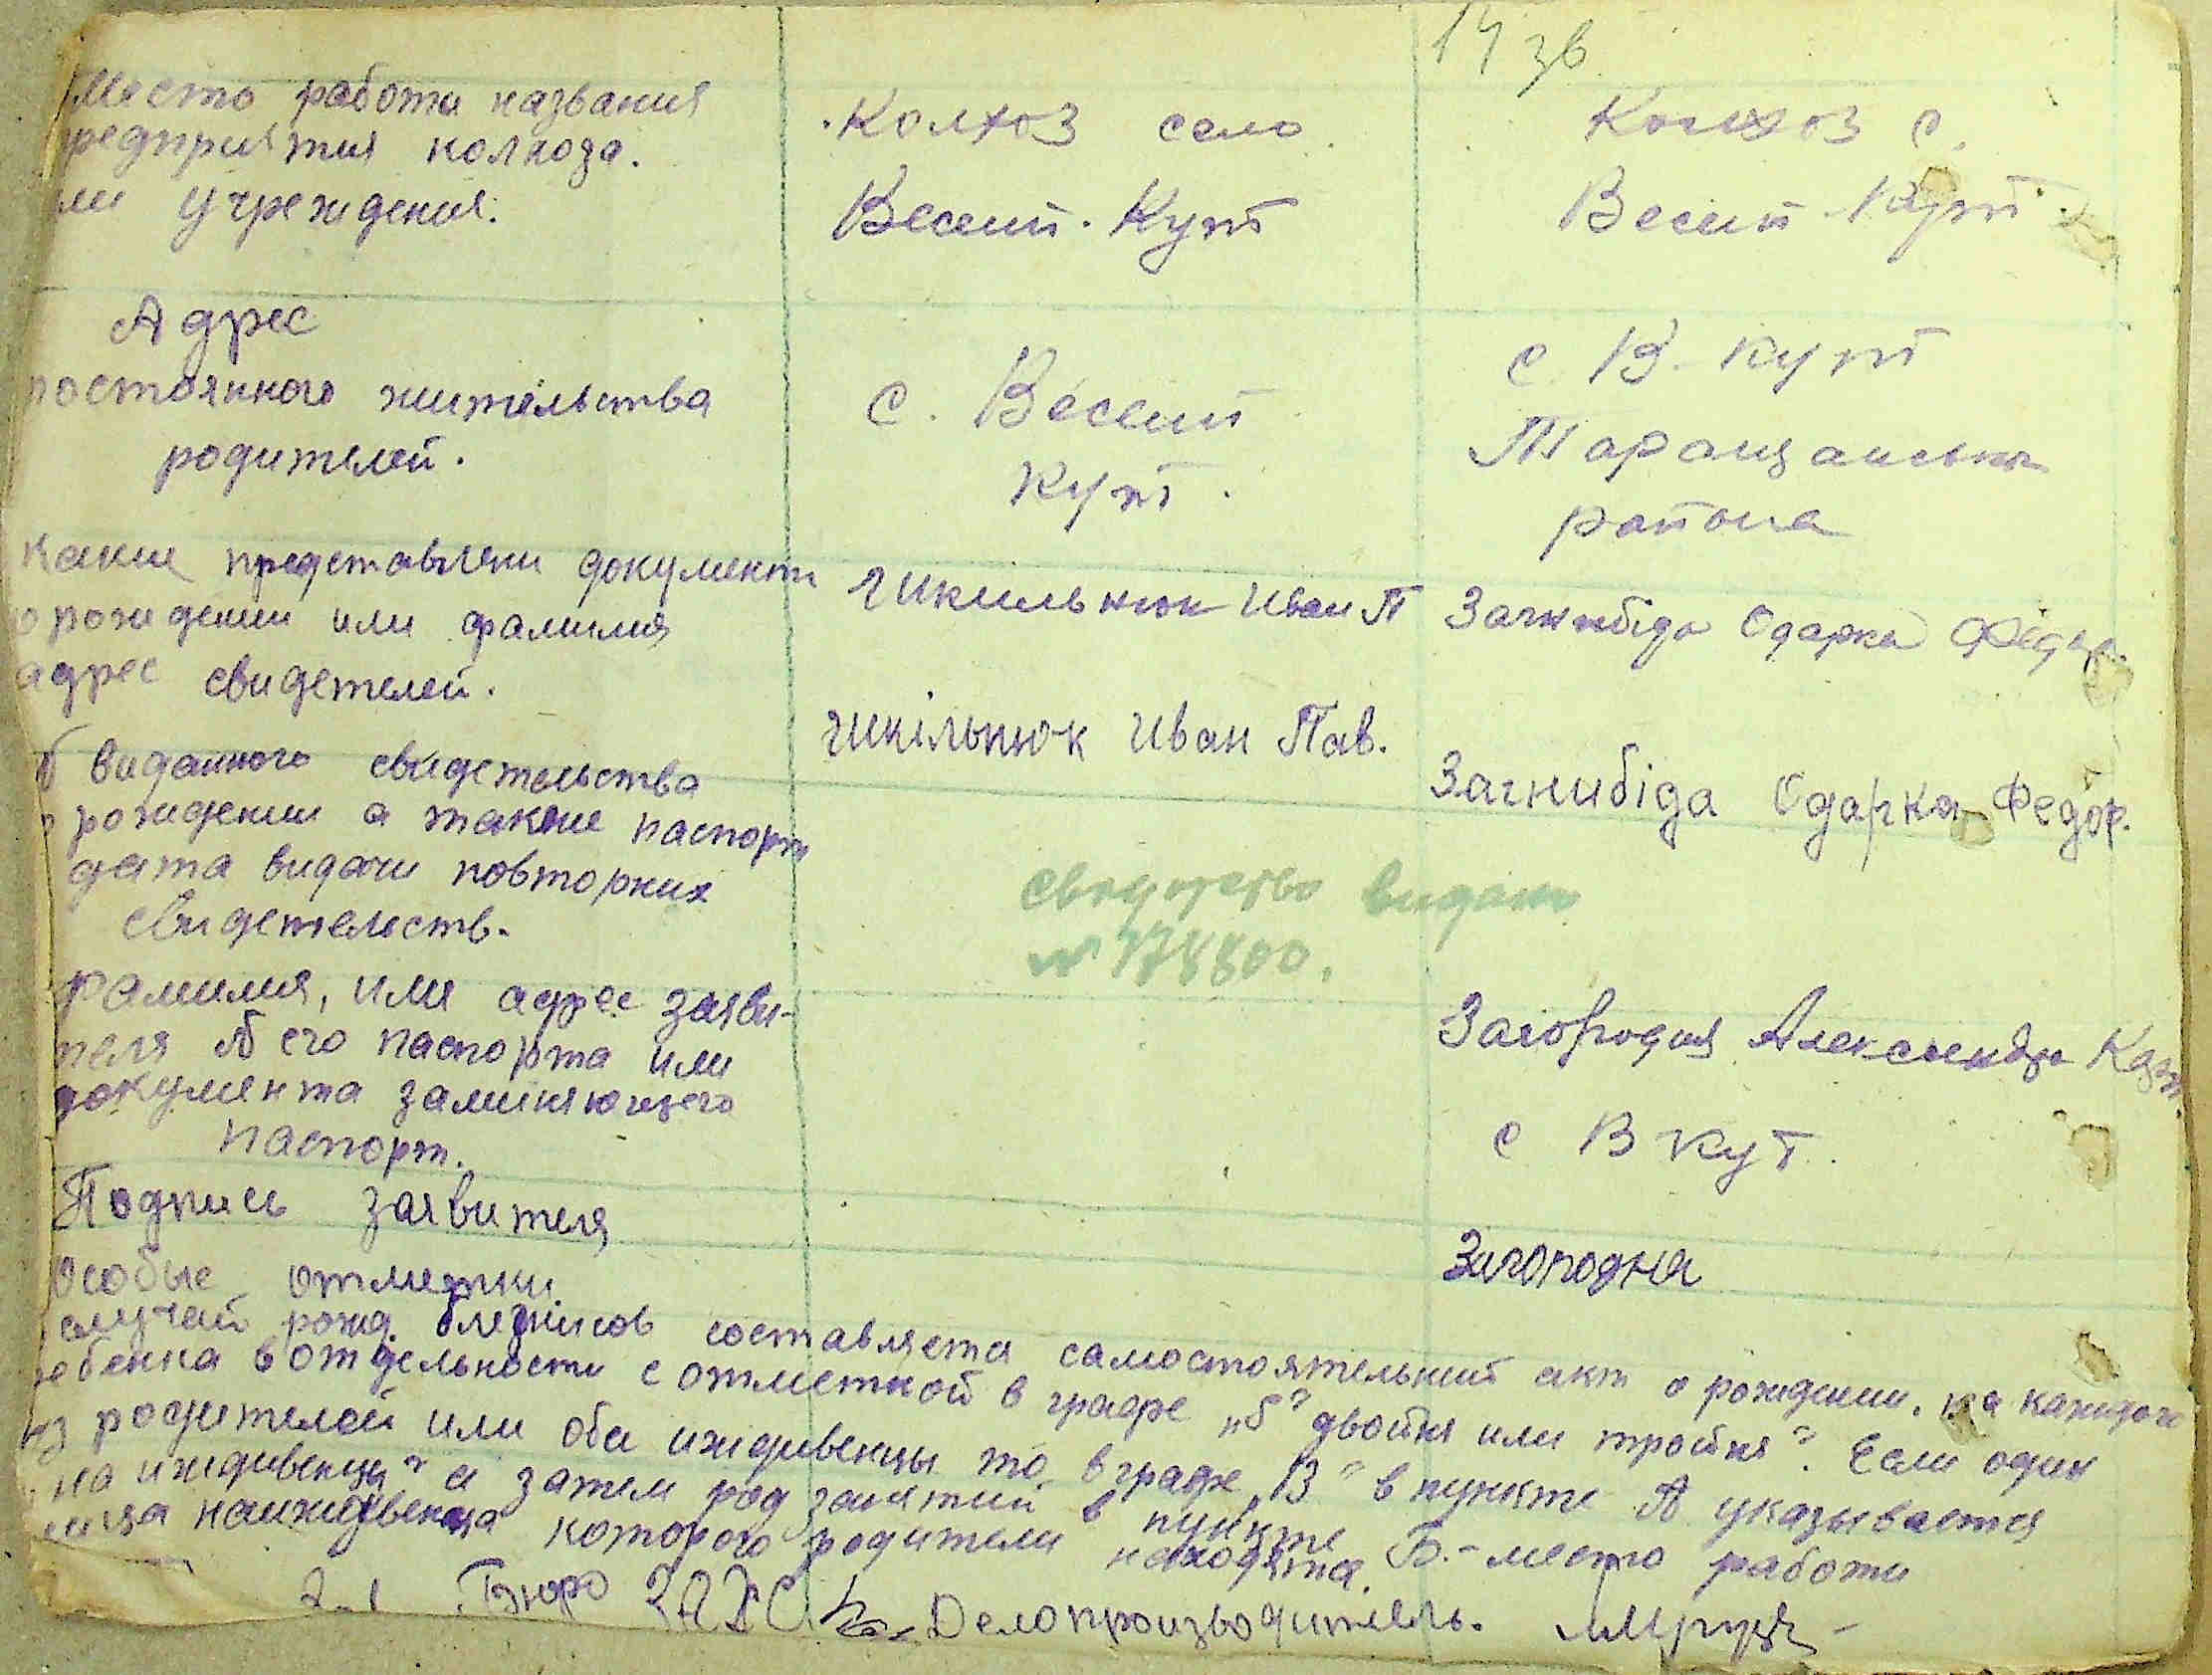 14 зв
Место работи названия
редприятия колхоза.
ли учреждения.
Колхоз село
Веселий. Кут
Колхоз с.
Веселий Кут
Адрес
постоянного жительства
родителей.
с. Веселий
Кут.
с В. Кут
Таращанського
района
Какие представлени документи
о рождении или фамилия
адрес свидетелей.
Шкильнюк Иван П
Загнибіда Одарка Федор.
Шкільнюк Иван Пав.
Загнибіда Одарка Федор.
№ виданного свидетельства
о рождении а также паспорт
дата видачи повторних
свидетельств.
свидотство видано
№ 178800.
Фамилия, имя адрес заяви-
теля № его паспорта или
документа заминяющего
паспорт.
Загородня Александра
с В Кут.
Подпись заявителя
Загородня
Особые отметки
случай рожд. близнісов составляется самостоятельний акт о рождении. на каждого
ребенка в отдельности с отметкой в графе „5" двойня или тройня". Если один
из родителей или оба иждивенцы то в графе „В" в пункте А указывается
на иждивенцы" а затем род занятий в пункте Б.- место работи
лица наиждивенца которого родители находятся.
Бюро ЗАГС Делопроизводитель.